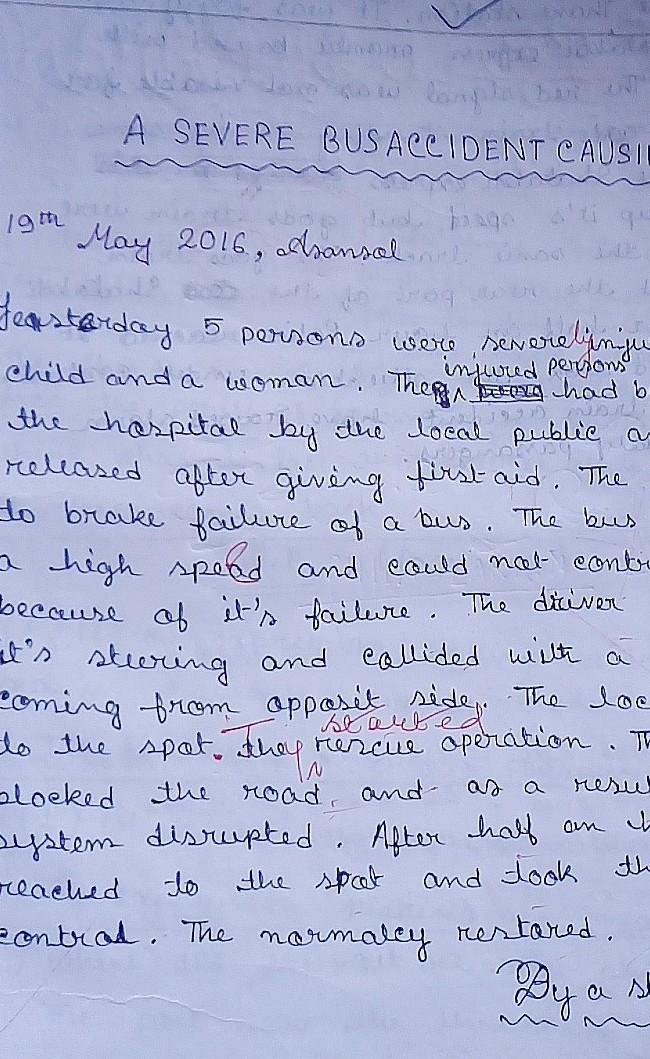 A SEVERE BUS ACCIDENT CAUSI
19th May 2016, Asansol
Yeasterday 5 persons were severely inju
child and a woman. The injured persons had b
the hospital by the local public a
released after giving first aid. The
to brake failure of a bus. The bus
a high speed and could not contr
because of it's failure. The driver
it's steering and collided with a
coming from opposit side. The loc
to the spot. They started rescue operation. Th
blocked the road, and as a resul
system disrupted. After half an h
reached to the spot and took th
control. The normalcy restored.
By a st